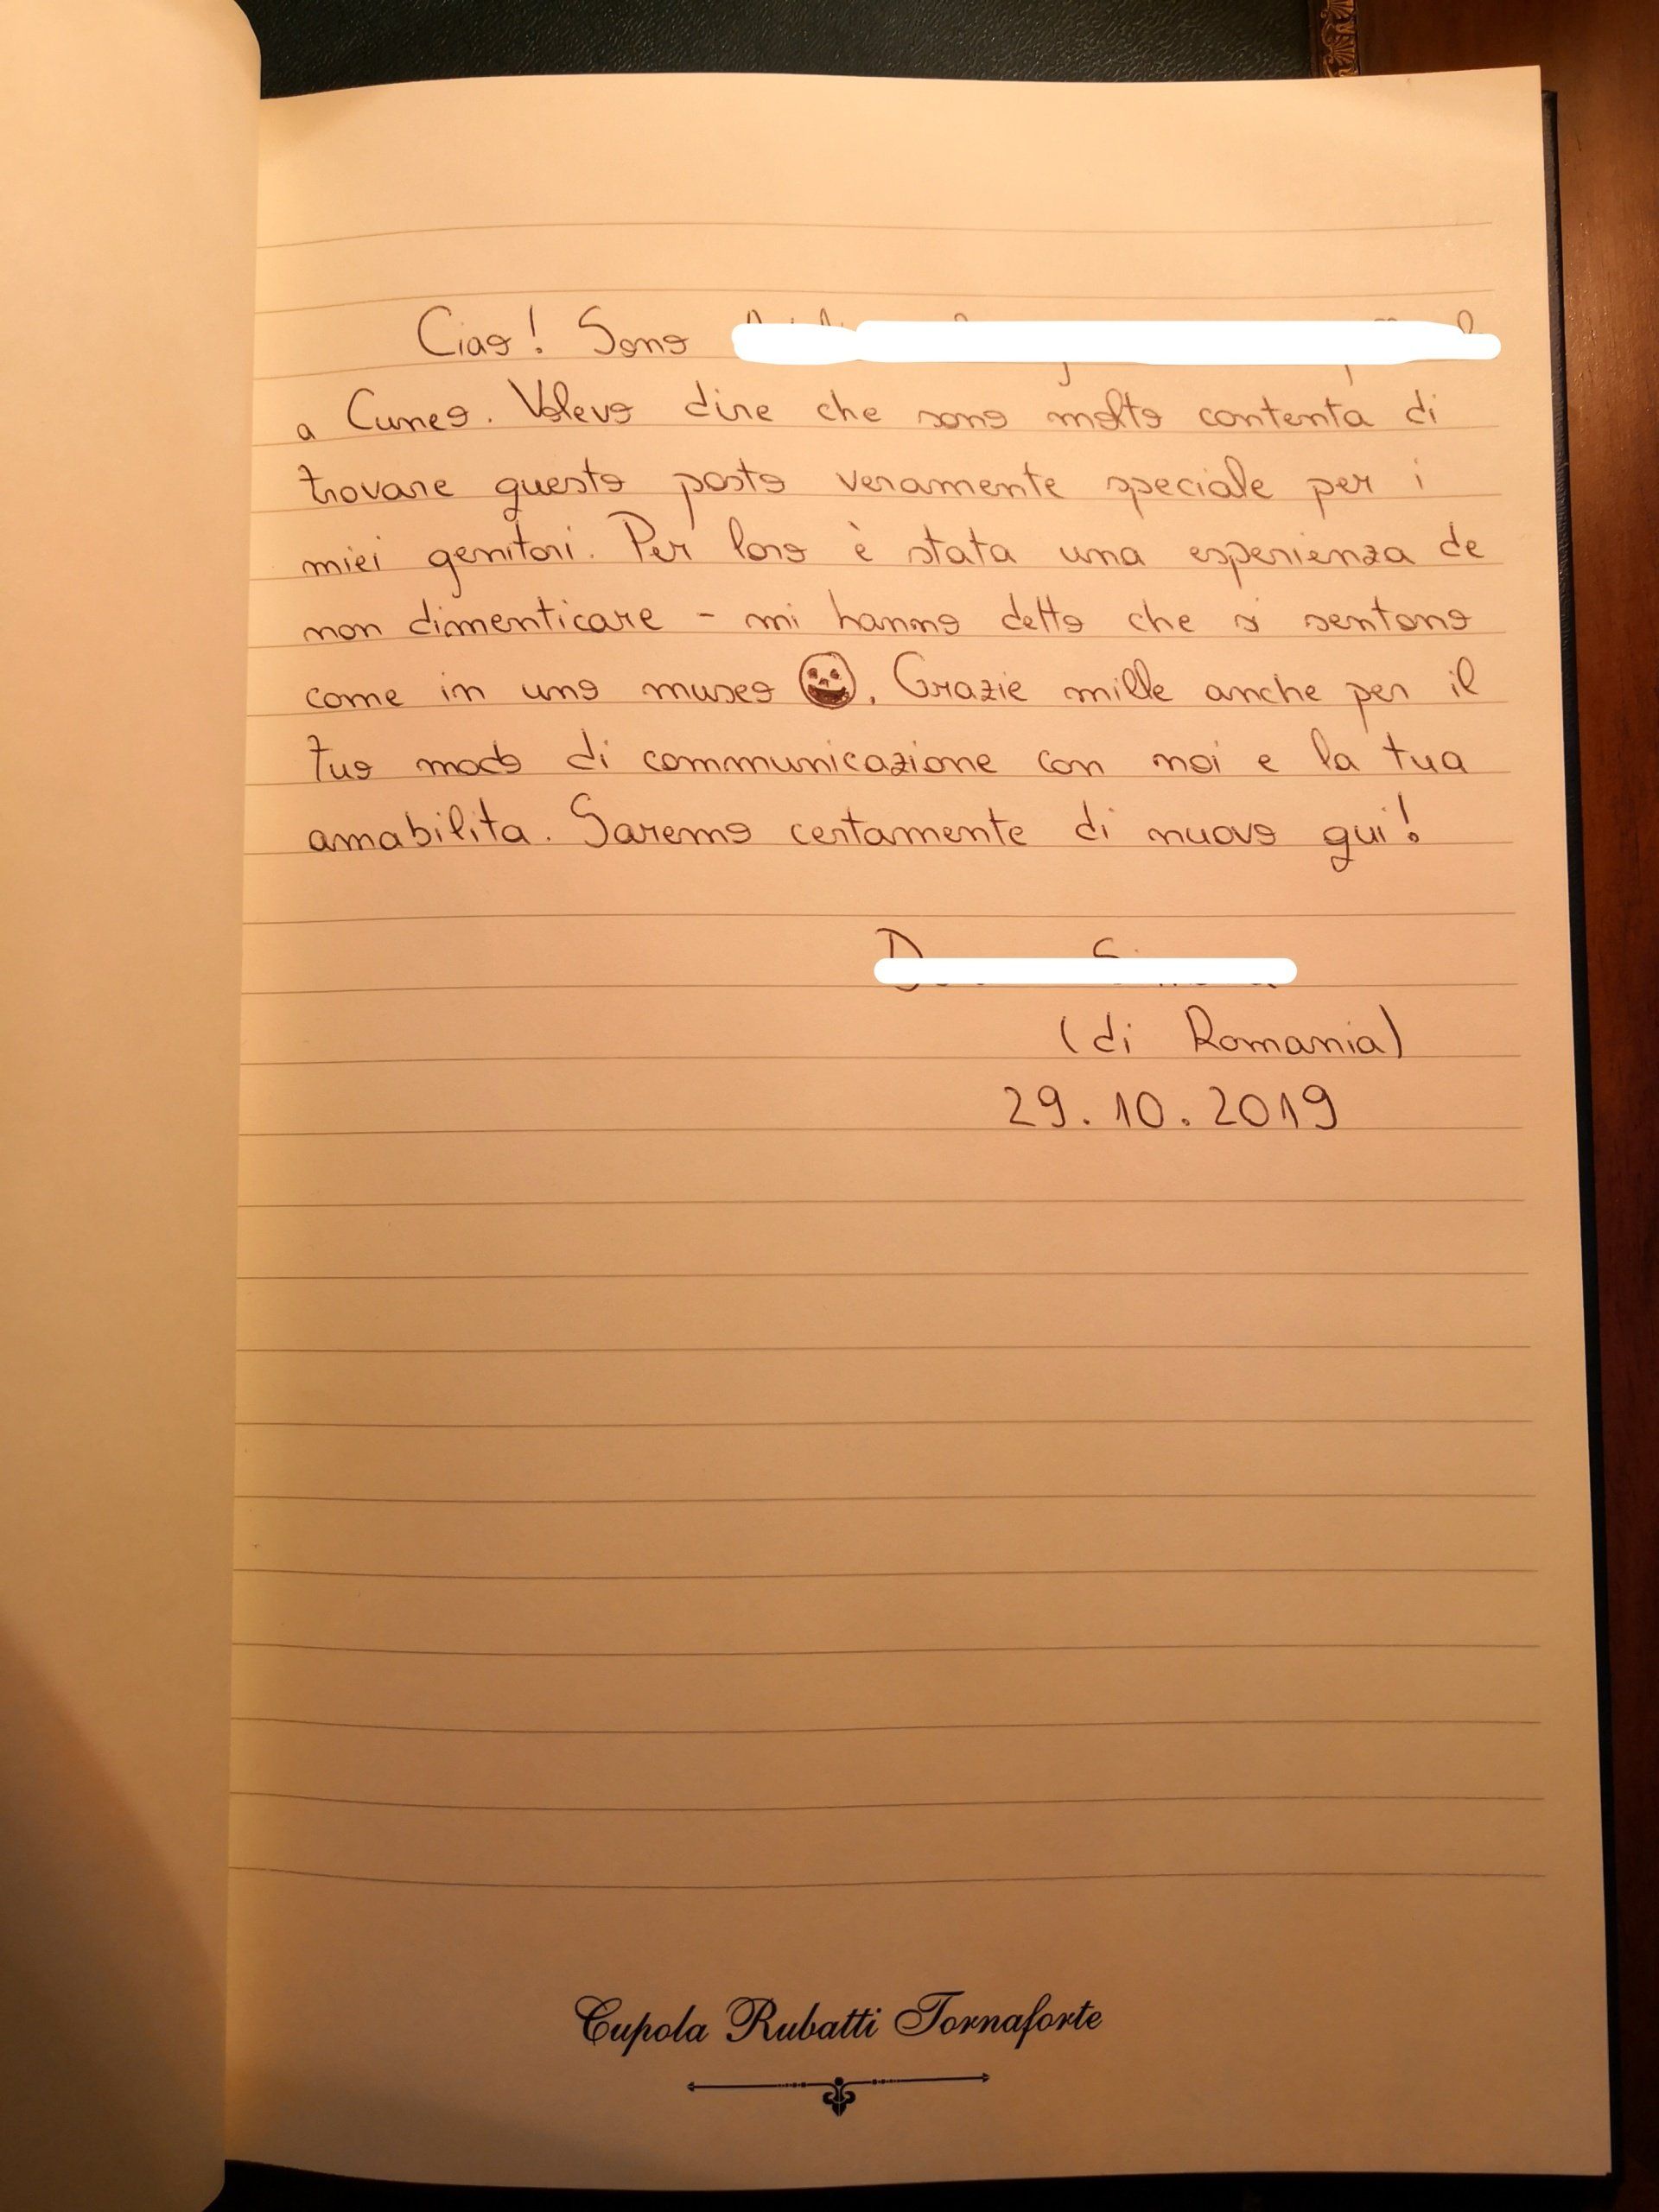 Ciao! Sono
a Cuneo. Volevo dire che sono molto contenta di
trovare questo posto veramente speciale per i
miei genitori. Per loro è stata una esperienza de
non dimenticare - mi hanno detto che si sentono
come in uno museo 😀. Grazie mille anche per il
tuo modo di communicazione con noi e la tua
amabilita. Saremo certamente di nuovo qui!
(di Romania)
29.10.2019
Cupola Rubatti Tornaforte